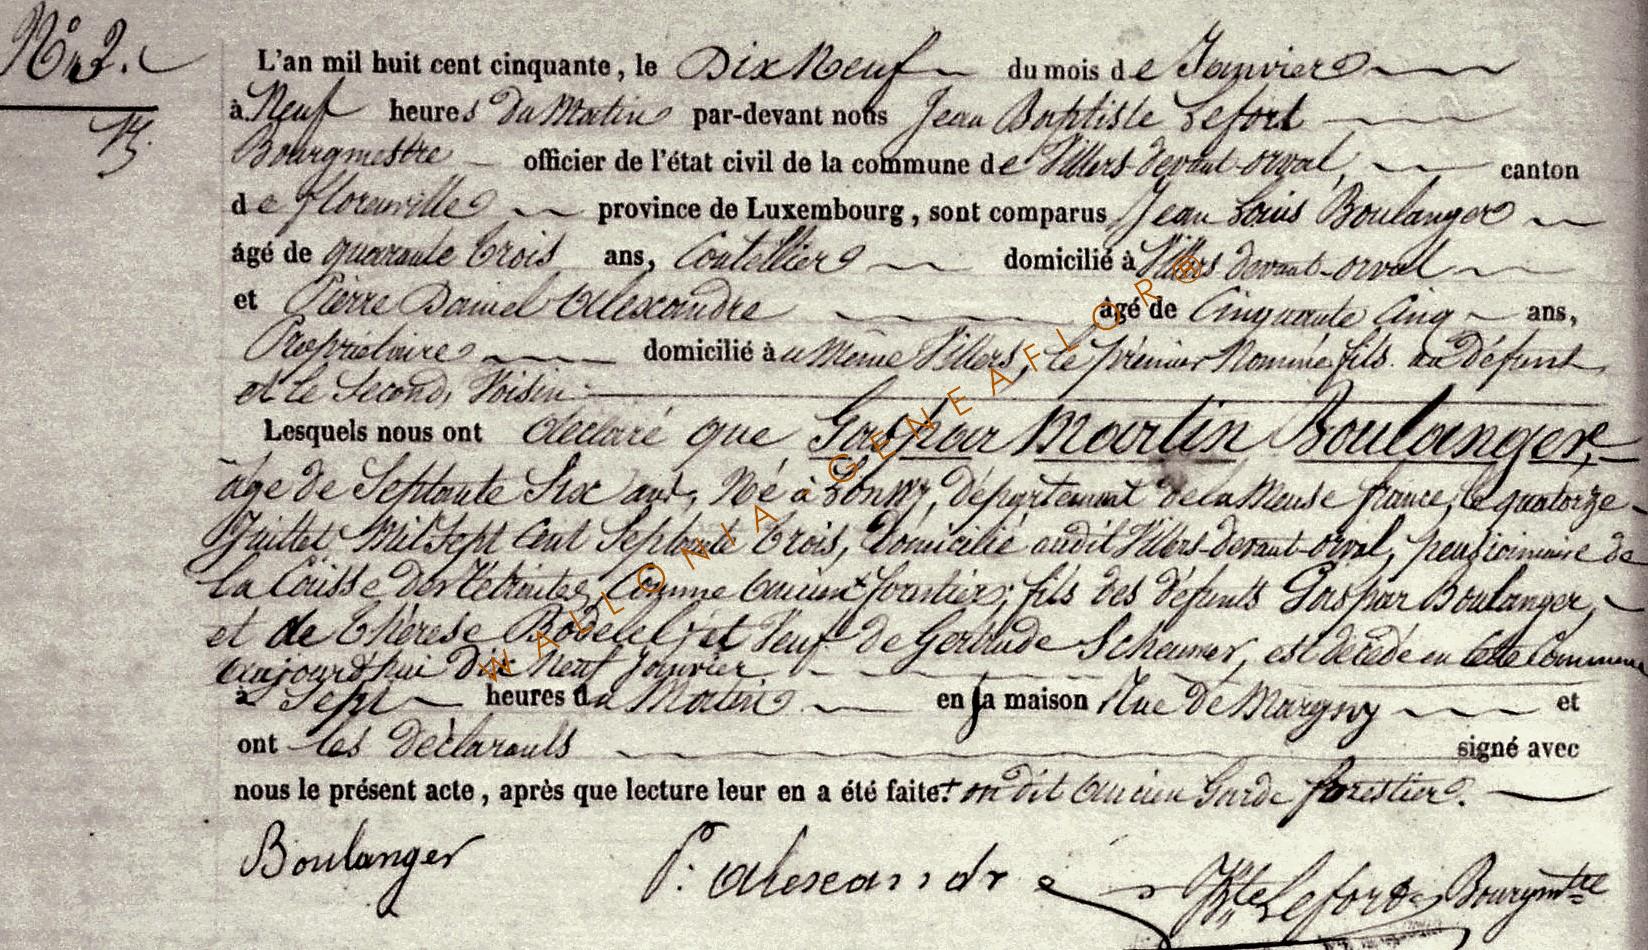 N° 2.
L'an mil huit cent cinquante, le Dix Neuf du mois de Janvier
à Neuf heures Du Matin par-devant nous Jean Baptiste Lefort
Bourgmestre officier de l'état civil de la commune de Villers devant-orval, canton
de florenville province de Luxembourg, sont comparus Jean Louis Boulanger
âgé de quarante trois ans, Coutellier domicilié à Villers devant-orval
et Pierre Daniel Alexandre âgé de Cinquante Cinq ans,
Propriétaire domicilié à u Même Villers, le prémier Nommé fils au Défunt
et le Second, Voisin
Lesquels nous ont déclaré que Gaspar Martin Boulanger,
âgé de Septante Six ans, Né à Département de la Meuse france, le quatorze
Juillet Mil Sept Cent Septante Trois, Domicilié audit Villers-devant-orval, pensionnaire de
la Caisse des Retraites, Comme Ancien + forestier; fils des défunts Gaspar Boulanger,
et de Thérèse et Veuf de Gertrude est décédé en cette Commune
aujourd'hui Dix Neuf Janvier
à Sept heures du Matin en sa maison Rue De Margny et
ont les Déclarants signé avec
nous le présent acte, après que lecture leur en a été faite. + on dit Ancien Garde forestier.
Boulanger
P. alexandre
Bte Lefort Bourgmtre
WALLONIA GENEAFLOR®